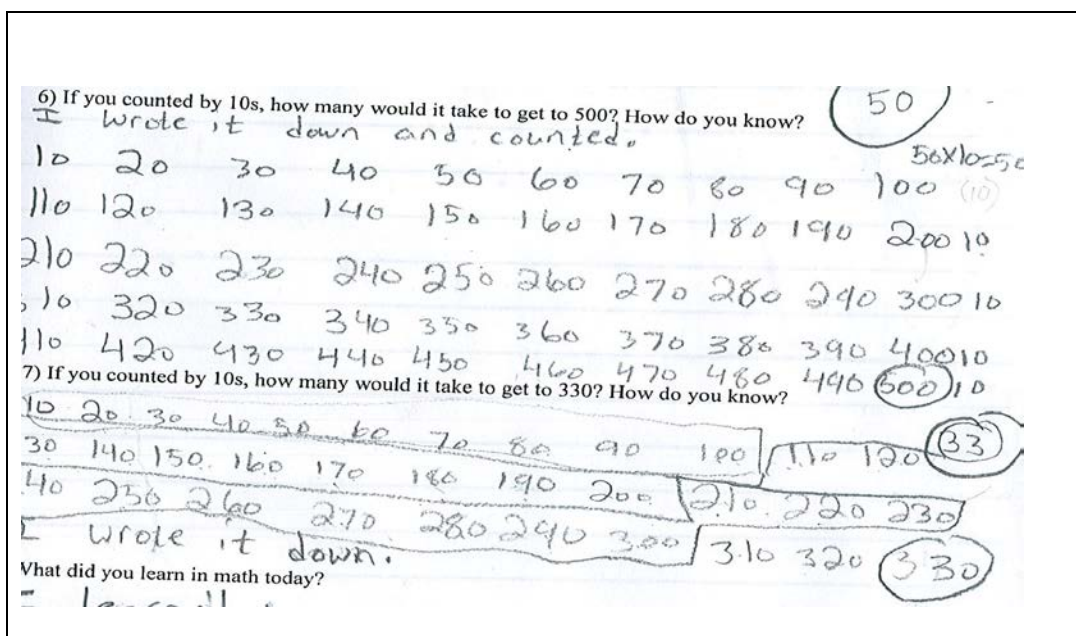 6) If you counted by 10s, how many would it take to get to 500? How do you know? 50
I wrote it down and counted.
50x10=50
10 20 30 40 50 60 70 80 90 100 (10)
110 120 130 140 150 160 170 180 190 200 10
210 220 230 240 250 260 270 280 290 300 10
10 320 330 340 350 360 370 380 390 400 10
110 420 430 440 450 460 470 480 490 500 10
7) If you counted by 10s, how many would it take to get to 330? How do you know?
10 20 30 40 50 60 70 80 90 100 110 120 33
30 140 150 160 170 180 190 200 210 220 230
40 250 260 270 280 290 300 310 320 330
I wrote it down.
What did you learn in math today?